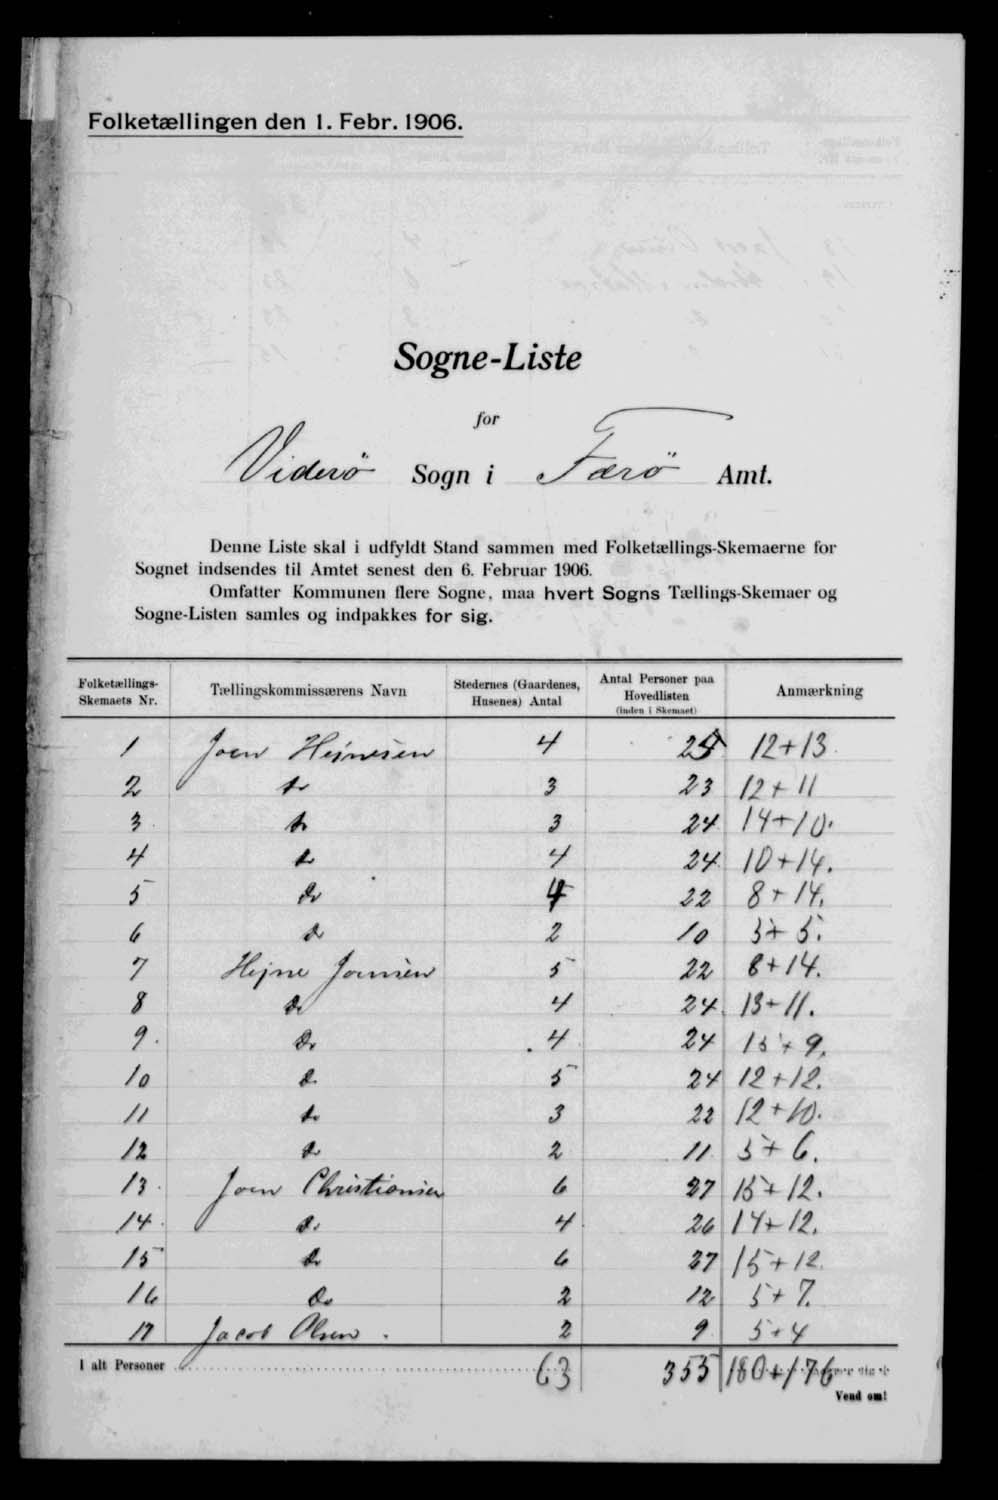 Folketællingen den 1. Febr. 1906.
Sogne-Liste
for
Viderö Sogn i Færö Amt.
Denne Liste skal i udfyldt Stand sammen med Folketællings-Skemaerne for
Sognet indsendes til Amtet senest den 6. Februar 1906.
Omfatter Kommunen flere Sogne, maa hvert Sogns Tællings-Skemaer og
Sogne-Listen samles og indpakkes for sig.
Folketællings-Skemaets Nr. Tællingskommissærens Navn Stedernes (Gaardenes, Husenes) Antal Antal Personer paa Hovedlisten (inden i Skemaet) Anmærkning
1 Joen Hejnesen 4 25 12+13
2 do 3 23 12+11
3 do 3 24 14+10.
4 do 4 24 10+14.
5 do 4 22 8+14.
6 do 2 10 5+5.
7 Hejne Joensen 5 22 8+14.
8 do 4 24 13+11.
9. do 4 24 15+9.
10 do 5 24 12+12.
11 do 3 22 12+10.
12 do 2 11 5+6.
13. Joen Christiansen 6 27 15+12.
14. do 4 26 14+12.
15 do 6 27 15+12.
16 do 2 12 5+7.
17 Jacob Olsen. 2 9 5+4
I alt Personer 63 355 180+176
Vend om!